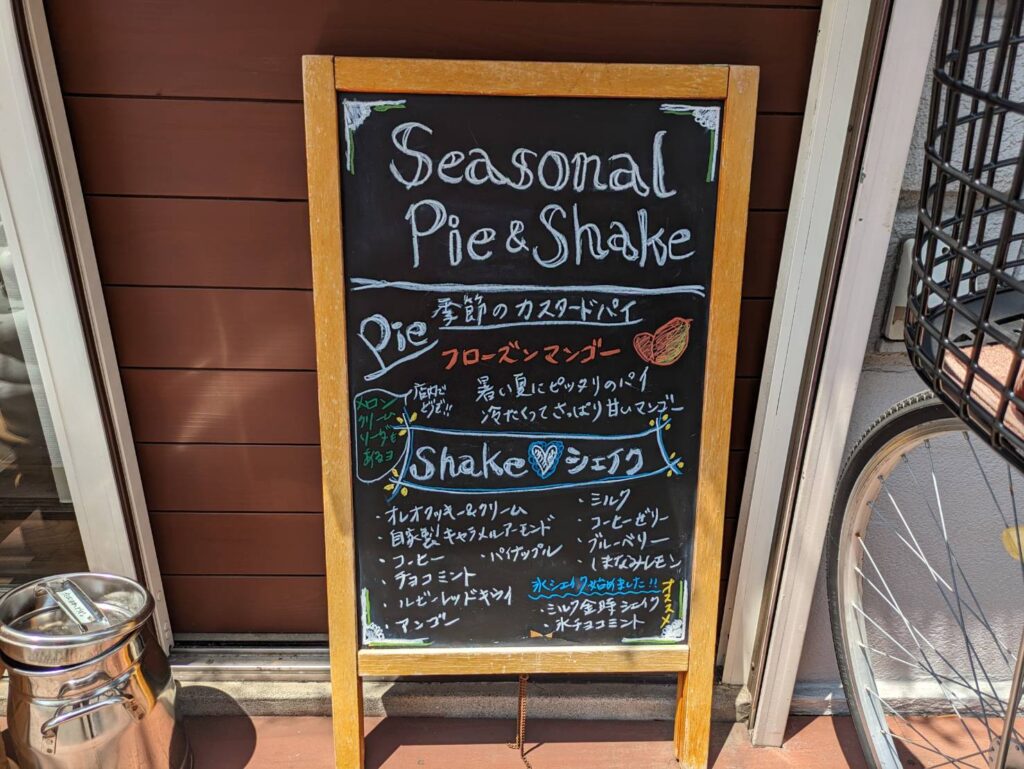 Seasonal
Pie & Shake
Pie
季節のカスタードパイ
フローズンマンゴー
暑い夏にピッタリのパイ
冷たくてさっぱり甘いマンゴー
店内で
どうぞ!!
メロン
クリーム
ソーダも
あるヨ
Shake シェイク
・オレオクッキー&クリーム
・自家製キャラメルアーモンド
・コーヒー ・パイナップル
・チョコミント
・ルビーレッドキウイ
・マンゴー
・ミルク
・コーヒーゼリー
・ブルーベリー
・しまなみレモン
氷シェイク始めました!!
・ミルク金時シェイク
・氷チョコミント
オススメ